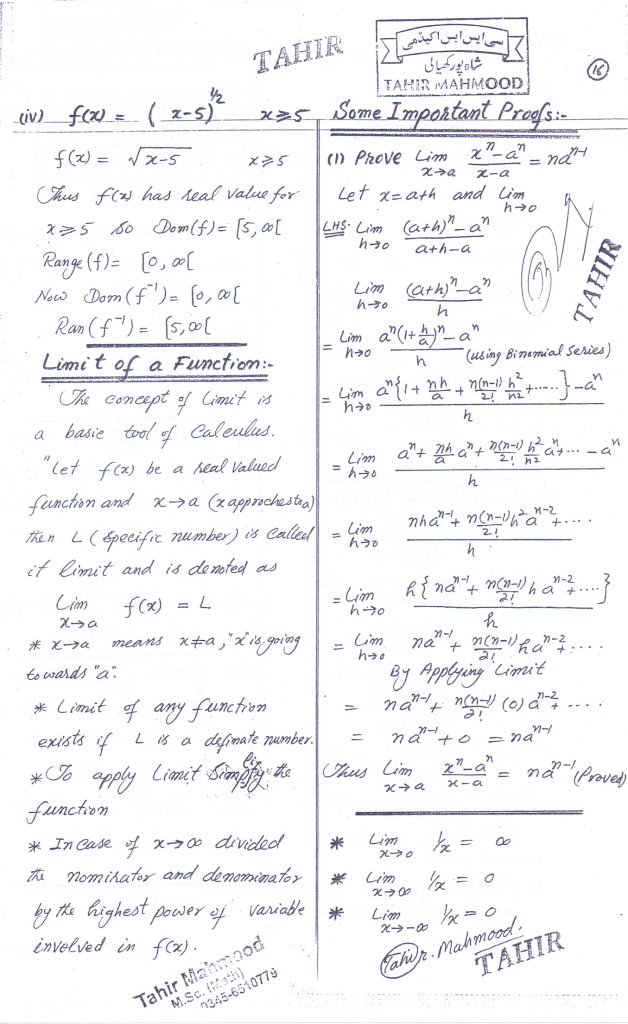 TAHIR
سی ایس ایس اکیڈمی
شاہ پور کھیالی
TAHIR MAHMOOD
16
(iv) f(x) = (x-5)^1/2 x⩾5
f(x) = √x-5 x⩾5
Thus f(x) has real value for
x⩾5 so Dom(f) = [5,∞[
Range(f) = [0,∞[
Now Dom(f⁻¹) = [0,∞[
Ran(f⁻¹) = [5,∞[
Limit of a Function:-
The concept of Limit is
a basic tool of Calculus.
"Let f(x) be a real valued
function and x→a (x approches to a)
then L (Specific number) is called
it limit and is denoted as
Lim x→a f(x) = L
* x→a means x≠a, "x" is going
towards "a".
* Limit of any function
exists if L is a definate number.
* To apply Limit Simplify the
function
* In case of x→∞ divided
the nominator and denominator
by the highest power of variable
involved in f(x).
Tahir Mahmood
M.Sc. (Math)
0345-6510779
Some Important Proofs:-
(1) Prove Lim x→a (xⁿ-aⁿ)/(x-a) = naⁿ⁻¹
Let x=a+h and Lim h→0
LHS. Lim h→0 ((a+h)ⁿ-aⁿ)/(a+h-a)
Lim h→0 ((a+h)ⁿ-aⁿ)/h
= Lim h→0 (aⁿ(1+h/a)ⁿ-aⁿ)/h (using Binomial Series)
= Lim h→0 (aⁿ{1+nh/a+n(n-1)/2! h²/n2+.....}-aⁿ)/h
= Lim h→0 (aⁿ+nh/a aⁿ+n(n-1)/2! h²/n2 aⁿ+... -aⁿ)/h
= Lim h→0 (nhaⁿ⁻¹+n(n-1)/2! h²aⁿ⁻²+....)/h
= Lim h→0 h{naⁿ⁻¹+n(n-1)/2! h aⁿ⁻²+....}/h
= Lim h→0 naⁿ⁻¹+n(n-1)/2! haⁿ⁻²+....
By Applying Limit
= naⁿ⁻¹+n(n-1)/2! (0)aⁿ⁻²+....
= naⁿ⁻¹+0 = naⁿ⁻¹
Thus Lim x→a (xⁿ-aⁿ)/(x-a) = naⁿ⁻¹ (Proved)
* Lim x→0 1/x = ∞
* Lim x→∞ 1/x = 0
* Lim x→-∞ 1/x = 0
Tahir. Mahmood.
TAHIR
TAHIR